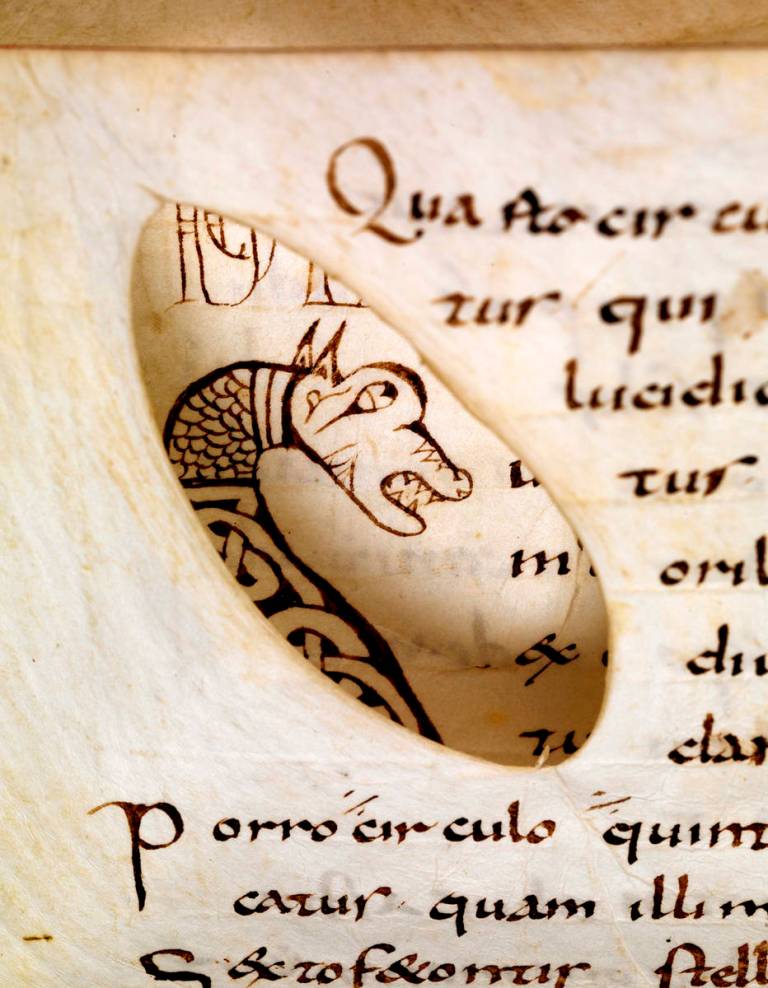 Quarto circu
tur qui
lucidi
tur
m oril
& diu
tu clar
Porro circulo quint
catur quam illi m
Sexto f&ontis stell